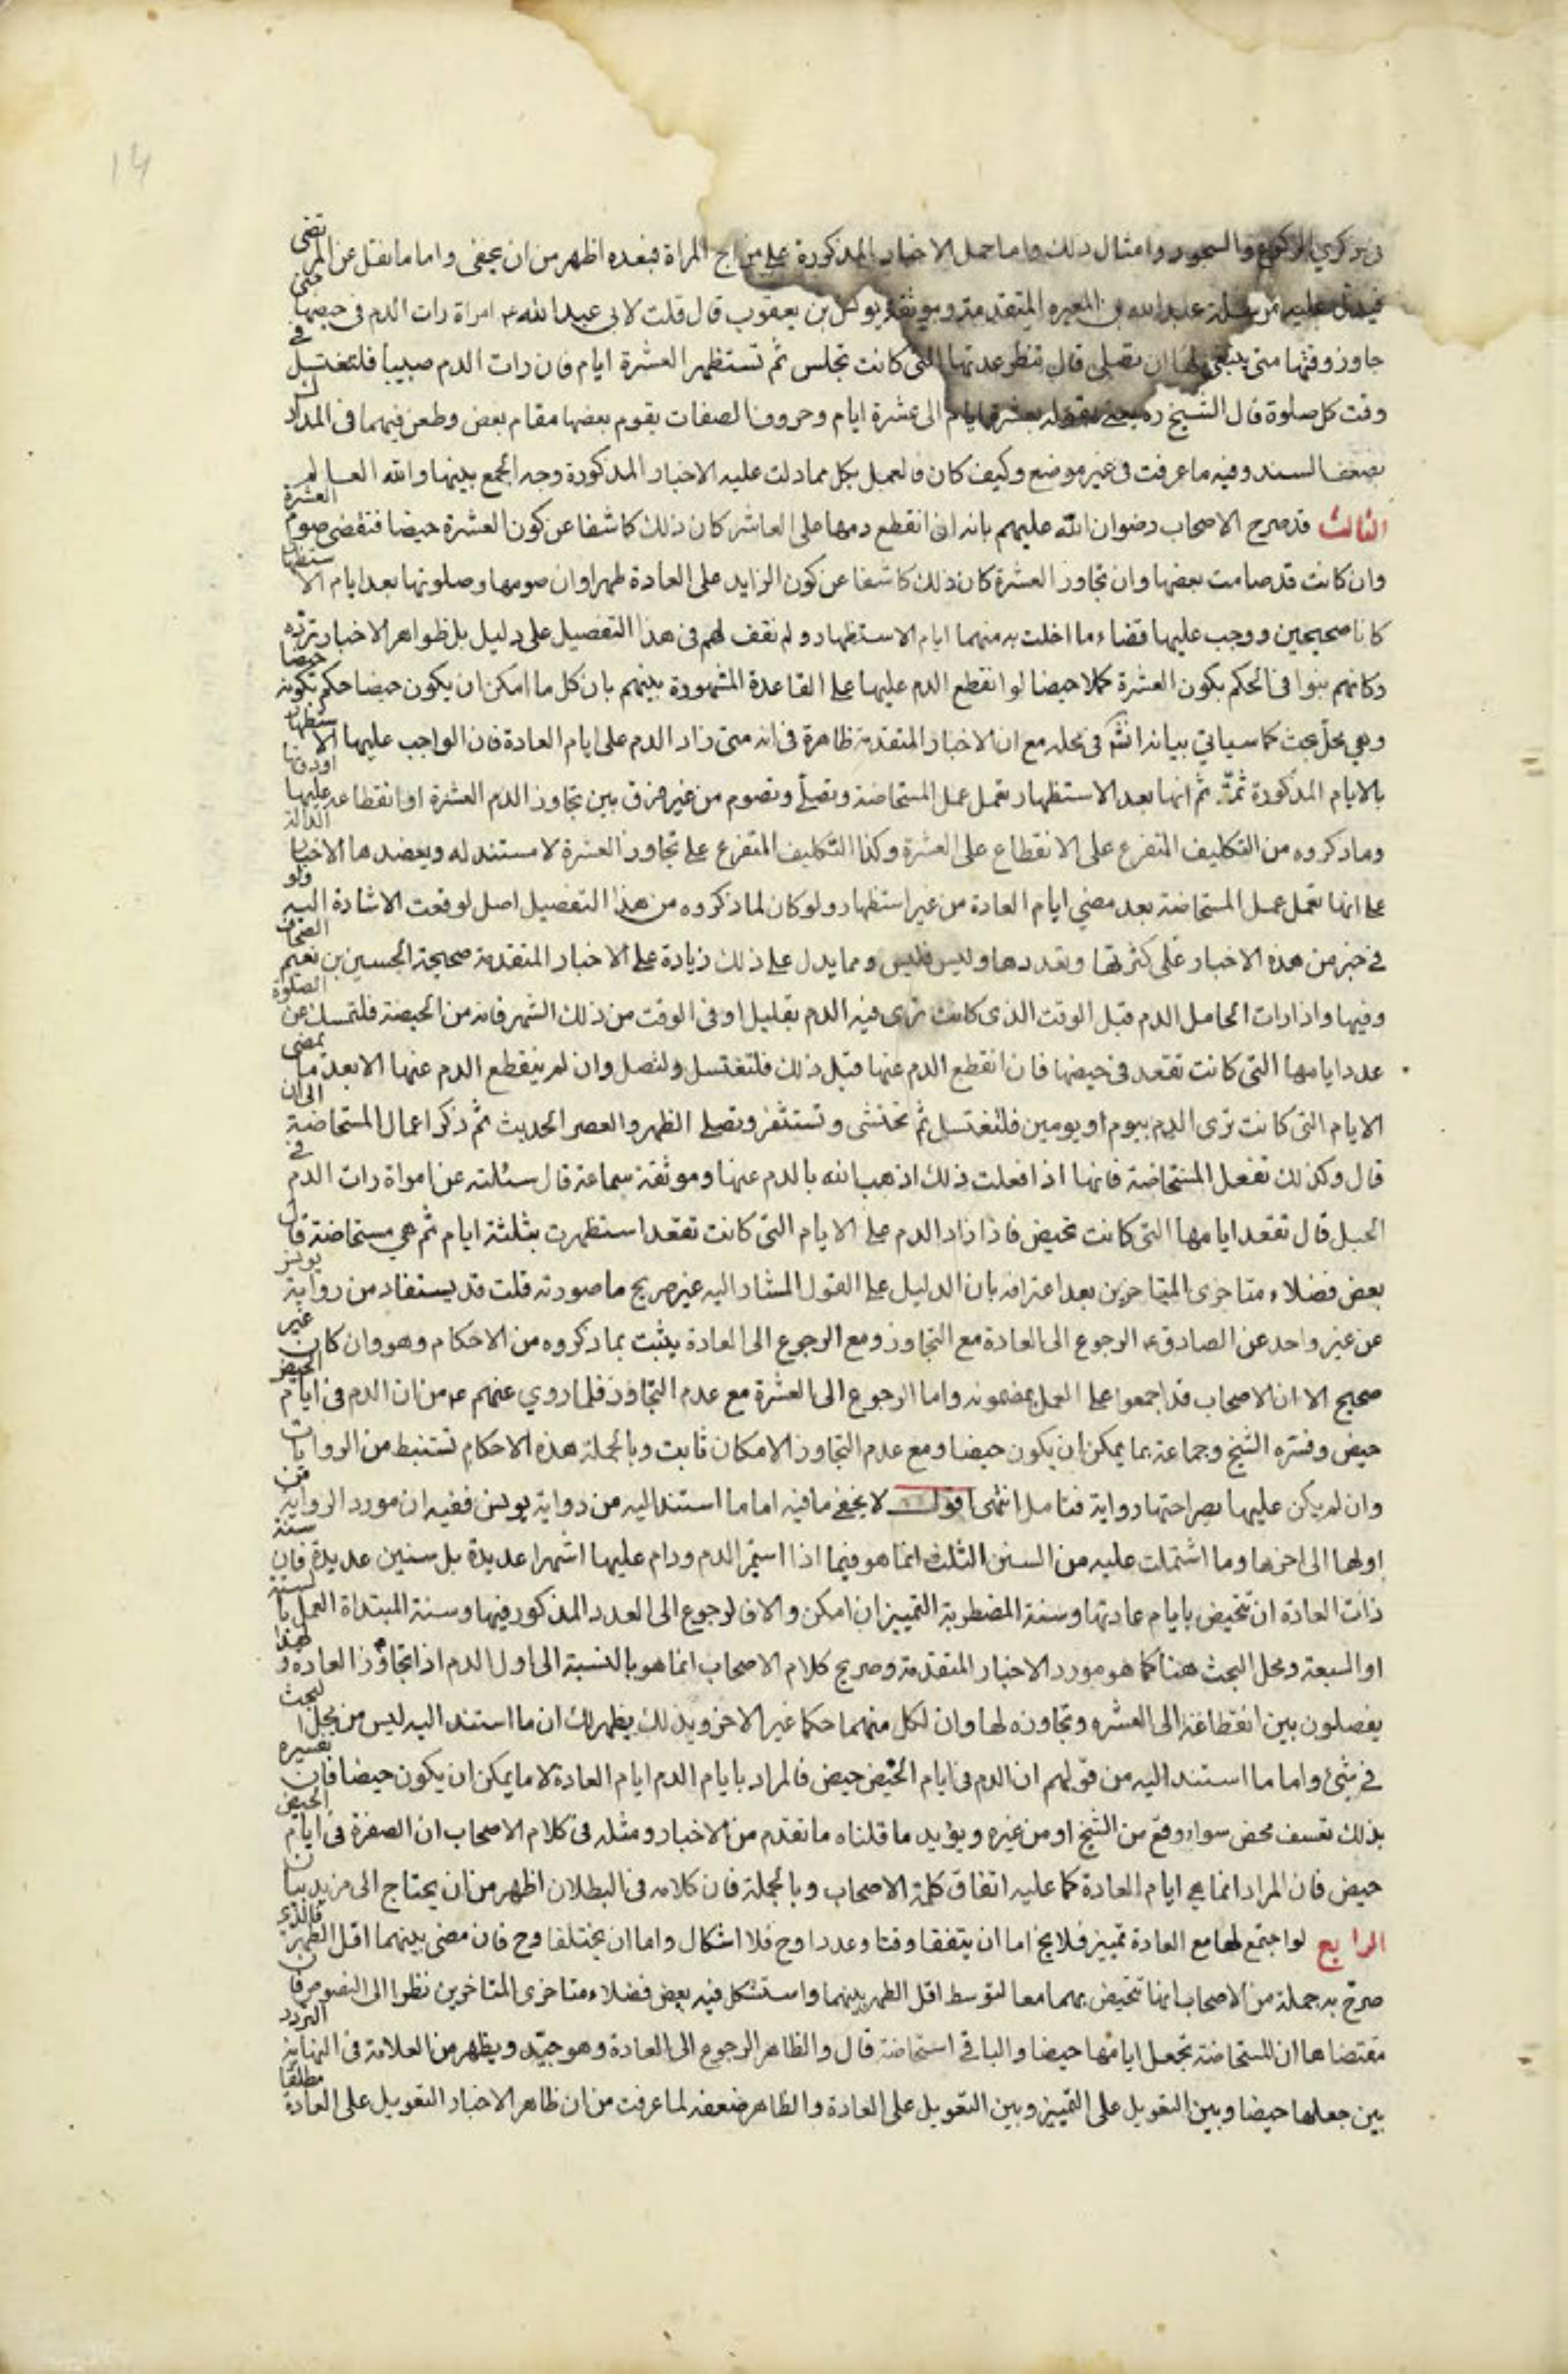 14
في ذكري الركوع والسجود وامثال ذلك واما حمل الاخبار المذكورة على مزاج المراة فبعده اظهر من ان يخفى واما ما نقل عن المرتضى
فيدل عليه مرسلة عبدالله بن المغيرة المتقدمة وموثقة يونس بن يعقوب قال قلت لابي عبدالله ع امراة رات الدم في حيضها حتى
جاوز وقتها متى ينبغي لها ان تصلي قال تنظر عدتها التي كانت تجلس ثم تستظهر العشرة ايام فان رات الدم صبيبا فلتغتسل في
وقت كل صلوة قال الشيخ ره معنى قوله بعشرة ايام الى عشرة ايام وحروف الصفات يقوم بعضها مقام بعض وطعن فيهما في المدارك
بضعف السند وفيه ما عرفت في غير موضع وكيف كان فالعمل بكل مما دلت عليه الاخبار المذكورة وجه الجمع بينها والله العالم
الثالث قد صرح الاصحاب رضوان الله عليهم بانه ان انقطع دمها على العاشر كان ذلك كاشفا عن كون العشرة حيضا فتقضى صوم العشرة
وان كانت قد صامت بعضها وان تجاوز العشرة كان ذلك كاشفا عن كون الزايد على العادة طهرا وان صومها وصلوتها بعد ايام الاستظهار
كانا صحيحين ووجب عليها قضاء ما اخلت به منهما ايام الاستظهار ولم نقف لهم في هذا التفصيل على دليل بل ظواهر الاخبار ترده
وكانهم بنوا في الحكم بكون العشرة كملا حيضا لو انقطع الدم عليها على القاعدة المشهورة بينهم بان كل ما امكن ان يكون حيضا حكم بكونه حيضا
وهي محل بحث كما سياتي بيانه انش في محله مع ان الاخبار المتقدمة ظاهرة في انه متى زاد الدم على ايام العادة فان الواجب عليها الاستظهار
بالايام المذكورة ثمة ثم انها بعد الاستظهار تعمل عمل المستحاضة وتصلي وتصوم من غير فرق بين تجاوز الدم العشرة او انقطاعه عليها اودونها
وما ذكروه من التكليف المتفرع على الانقطاع على العشرة وكذا التكليف المتفرع على تجاوز العشرة لا مستند له ويعضدها الاخبار الدالة
على انها تعمل عمل المستحاضة بعد مضي ايام العادة من غير استظهار ولو كان لما ذكروه من هذا التفصيل اصل لوقعت الاشارة اليه ولو
في خبر من هذه الاخبار على كثرتها وتعددها وليس فليس ومما يدل على ذلك زيادة على الاخبار المتقدمة صحيحة الحسين بن نعيم الصحاف
وفيها واذا رات الحامل الدم قبل الوقت الذى كانت ترى فيه الدم بقليل او في الوقت من ذلك الشهر فانه من الحيضة فلتمسك عن الصلوة
عدد ايامها التي كانت تقعد في حيضها فان انقطع الدم عنها قبل ذلك فلتغتسل ولتصل وان لم ينقطع الدم عنها الا بعد ما يمضى
الايام التي كانت ترى الدم بيوم او يومين فلتغتسل ثم تحتشى وتستثفر وتصلى الظهر والعصر الحديث ثم ذكر اعمال المستحاضة الى ان
قال وكذلك تفعل المستحاضة فانها اذا فعلت ذلك اذهب الله بالدم عنها وموثقة سماعة قال سئلته عن امراة رات الدم في
الحبل قال تقعد ايامها التي كانت تحيض فاذا زاد الدم على الايام التي كانت تقعد استظهرت بثلثة ايام ثم هي مستحاضة قال
بعض فضلاء متاخرى المتاخرين بعد اعترافه بان الدليل على القول المشار اليه غير صريح ما صورته قلت قد يستفاد من رواية يونس
عن غير واحد عن الصادق ع الرجوع الى العادة مع التجاوز ومع الرجوع الى العادة يثبت بما ذكروه من الاحكام وهو وان كان غير
صحيح الا ان الاصحاب قد اجمعوا على العمل بمضمونه واما الرجوع الى العشرة مع عدم التجاوز فلما روي عنهم ع من ان الدم في ايام الحيض
حيض وفسره الشيخ وجماعة بما يمكن ان يكون حيضا ومع عدم التجاوز الامكان ثابت وبالجملة هذه الاحكام تستنبط من الروايات
وان لم يكن عليها بصراحتها رواية فتامل انتهى اقول لا يخفى ما فيه اما ما استند اليه من رواية يونس ففيه ان مورد الرواية من
اولها الى اخرها وما اشتملت عليه من السنن الثلث انما هو فيما اذا استمر الدم ودام عليها اشهرا عديدة بل سنين عديدة فان سنة
ذات العادة ان تتحيض بايام عادتها وسنة المضطربة التمييز ان امكن والا فالرجوع الى العدد المذكور فيها وسنة المبتداة العمل بالستة
او السبعة ومحل البحث هنا كما هو مورد الاخبار المتقدمة وصريح كلام الاصحاب انما هو بالنسبة الى اول الدم اذا تجاوز العادة ولهذا
يفصلون بين انقطاعه الى العشره وتجاوزه لها وان لكل منهما حكما غير الاخر وبذلك يظهر لك ان ما استند اليه ليس من محل البحث
في شئ واما ما استند اليه من قولهم ان الدم في ايام الحيض حيض فالمراد بايام الدم ايام العادة لا ما يمكن ان يكون حيضا فان تفسيره
بذلك تعسف محض سواء وقع من الشيخ او من غيره ويؤيد ما قلناه ما تقدم من الاخبار ومثله في كلام الاصحاب ان الصفرة في ايام الحيض
حيض فان المراد انما هي ايام العادة كما عليه اتفاق كلمة الاصحاب وبالجملة فان كلامه في البطلان اظهر من ان يحتاج الى مزيد بيان
الرابع لو اجتمع لها مع العادة تمييز فلا يخ اما ان يتفقا وقتا وعددا وح فلا اشكال واما ان يختلفا وح فان مضى بينهما اقل الطهر فالذى
صرح به جملة من الاصحاب انها تتحيض بهما معا لتوسط اقل الطهر بينهما واستشكل فيه بعض فضلاء متاخرى المتاخرين نظرا الى النصوص فان
مقتضاها ان المستحاضة تجعل ايامها حيضا والباقي استحاضة قال والظاهر الرجوع الى العادة وهو جيد ويظهر من العلامة في النهاية التردد
بين جعلها حيضا وبين التعويل على التمييز وبين التعويل على العادة والظاهر ضعفه لما عرفت من ان ظاهر الاخبار التعويل على العادة مطلقا